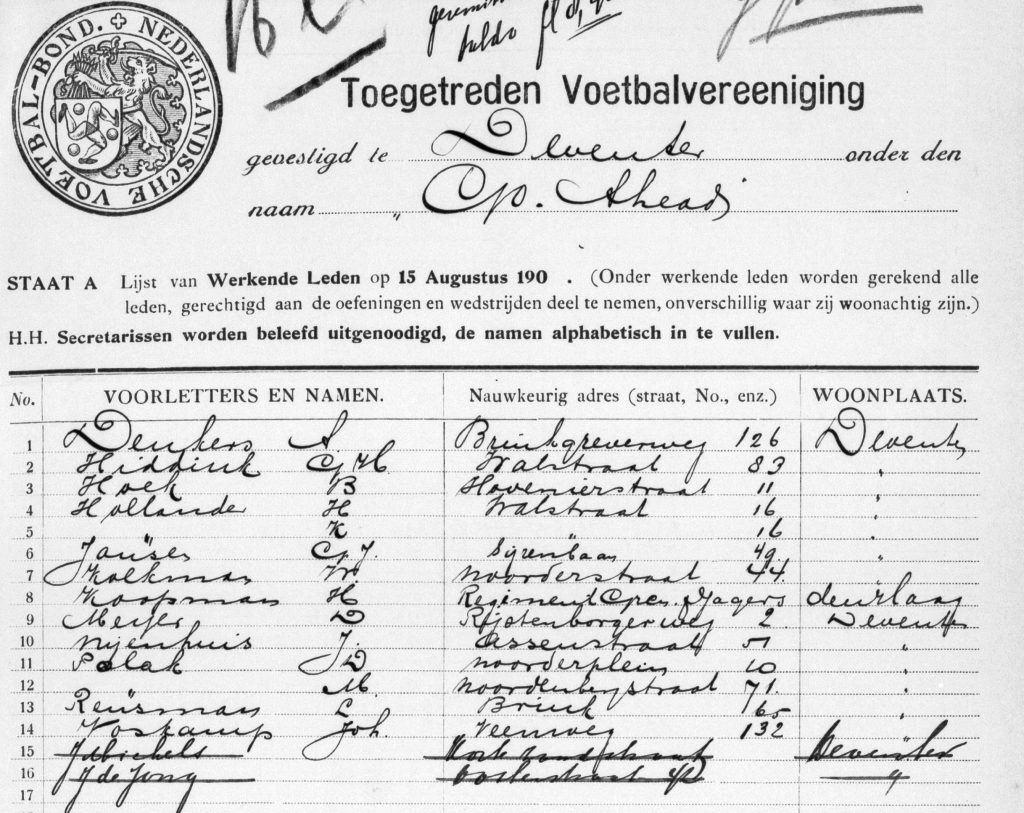 NEDERLANDSCHE VOETBAL-BOND.
Toegetreden Voetbalvereeniging
gevestigd te Deventer onder den
naam „ Go. Ahead
STAAT A Lijst van Werkende Leden op 15 Augustus 190 . (Onder werkende leden worden gerekend alle
leden, gerechtigd aan de oefeningen en wedstrijden deel te nemen, onverschillig waar zij woonachtig zijn.)
H.H. Secretarissen worden beleefd uitgenoodigd, de namen alphabetisch in te vullen.
No. VOORLETTERS EN NAMEN. Nauwkeurig adres (straat, No., enz.) WOONPLAATS.
1 Denkers A. Brinkgreverweg 126 Deventer
2 Hiddink G. H. Walstraat 83 "
3 Hoek B Hovenierstraat 11 "
4 Hollander H Walstraat 16 "
5 K 16 "
6 Jansen G. J. 49 "
7 Kolkman W Noorderstraat 44.
8 Koopman H Regiment Gren. Jagers den Haag
9 Meijer D Rijstenborgerweg 2. Deventer
10 Nijenhuis J. Assenstraat 51 "
11 Polak D Noorderplein 10 "
12 M. Noordenbergstraat 71. "
13 Reusman L. Brink 65 "
14 Voskamp Joh. Veenweg 132 "
15 Deventer
16 J de Jong Oosterstraat "
17